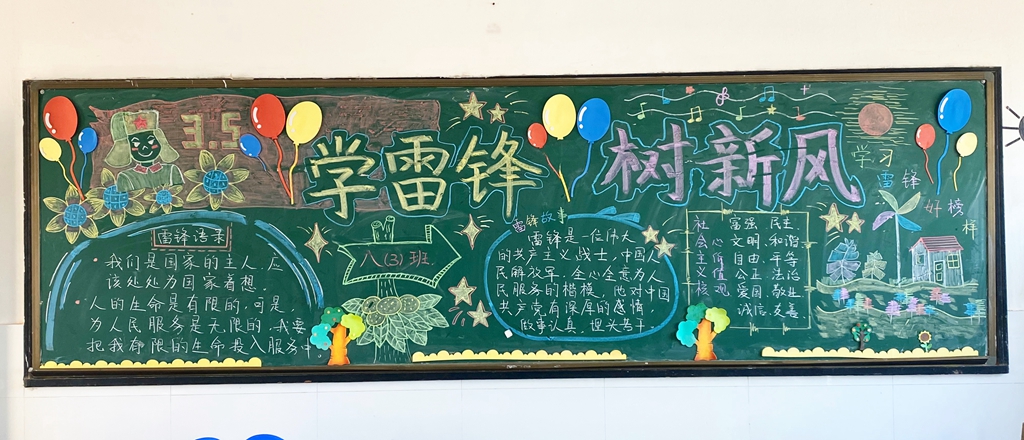 3.5
学雷锋 树新风
学习
雷锋
好榜
样
雷锋语录
我们是国家的主人,应
该处处为国家着想.
人的生命是有限的,可是,
为人民服务是无限的,我要
把我有限的生命投入服务中.
八(3)班
雷锋故事
雷锋是一位伟大
的共产主义战士,中国人
民解放军,全心全意为人
民服务的楷模,他对中国
共产党有深厚的感情
做事认真,埋头苦干
社会主义核
心价值观
富强、民主
文明、和谐
自由、平等
公正、法治
爱国、敬业
诚信、友善